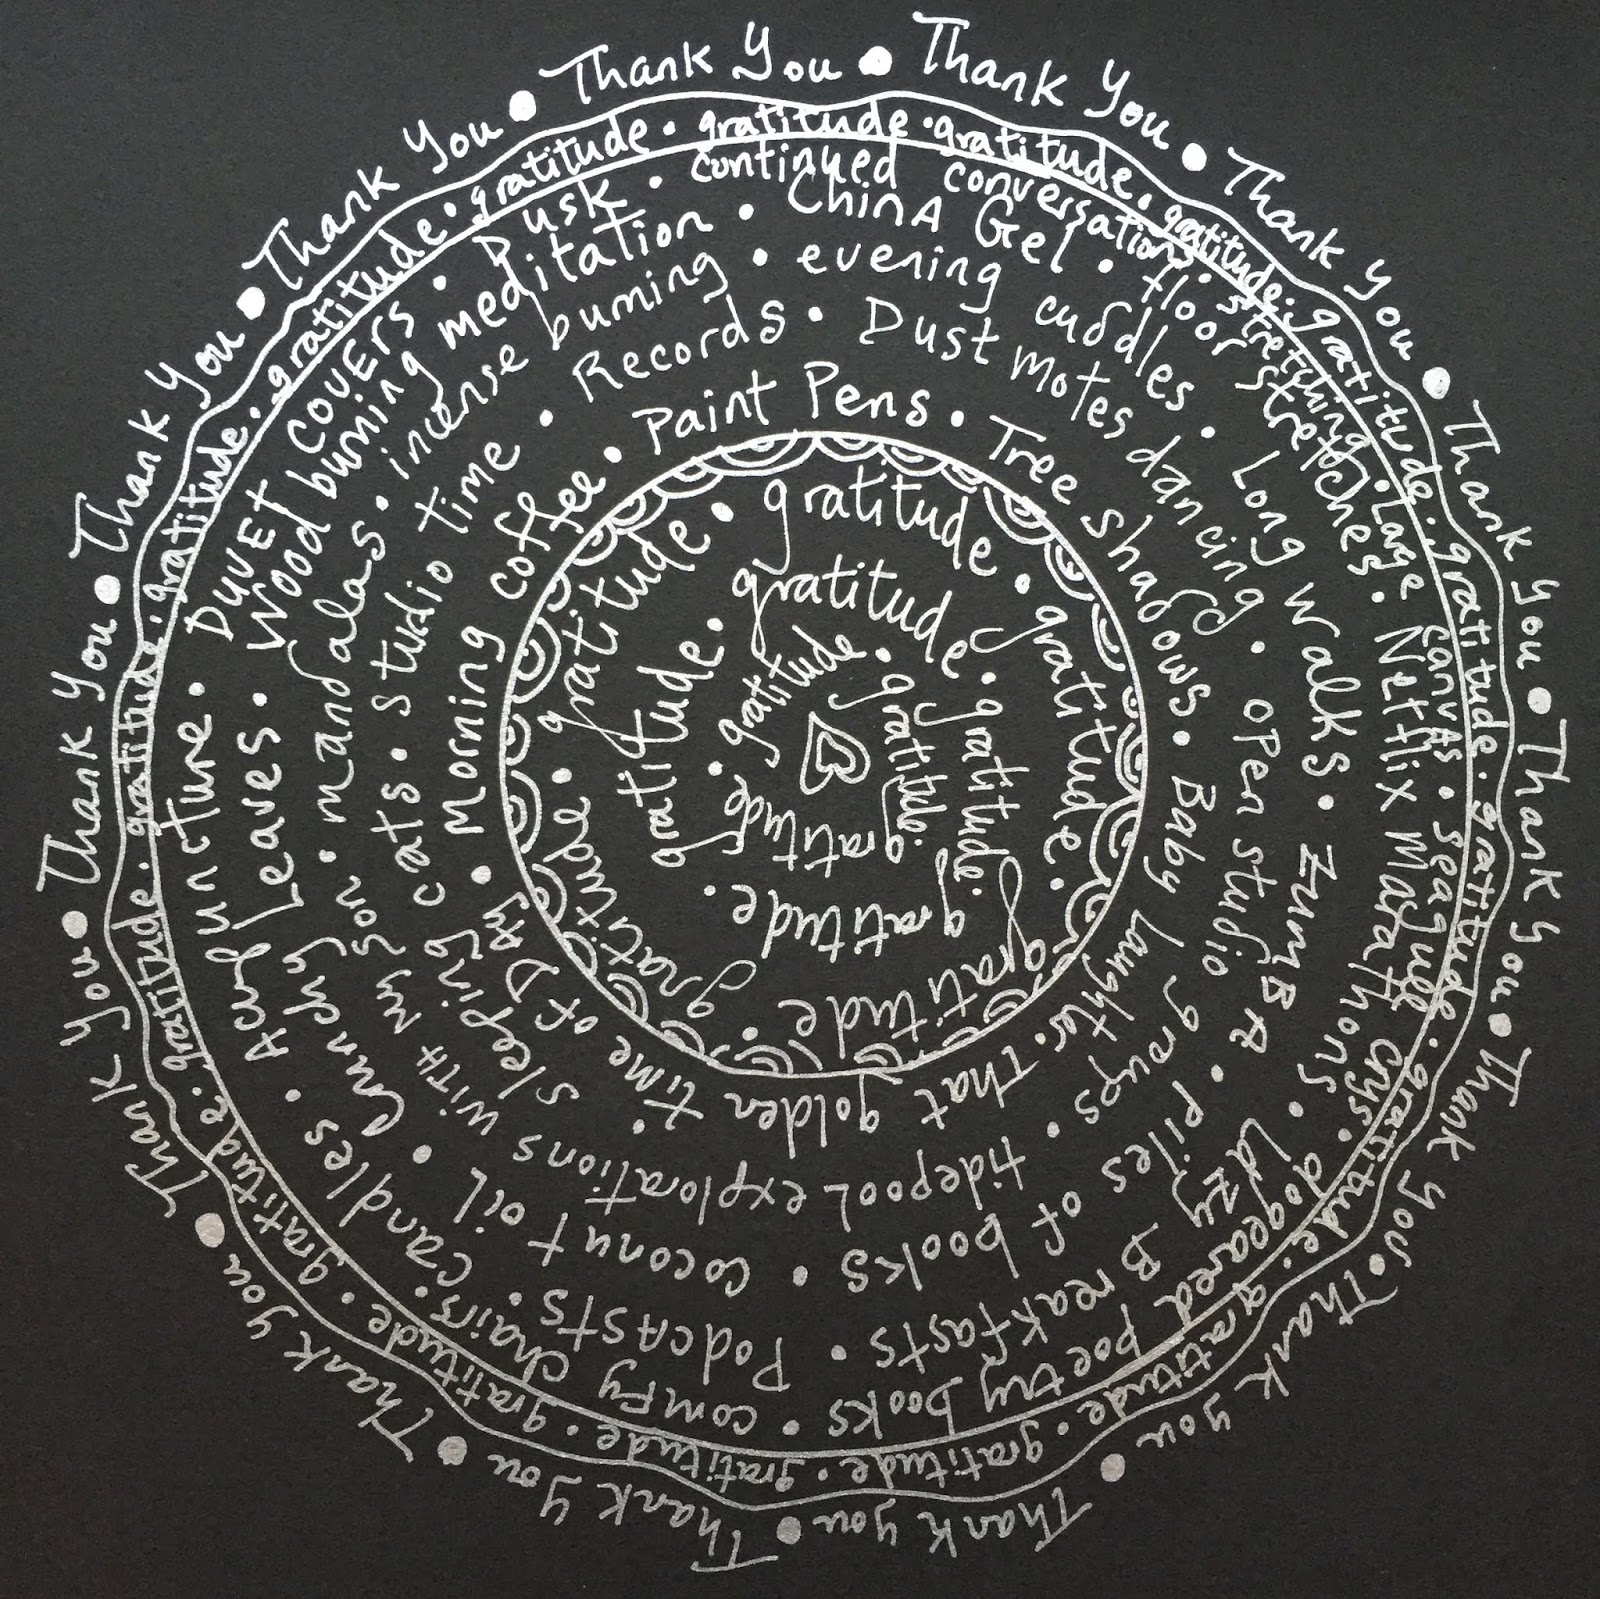 Thank You • Thank You • Thank You • Thank You • Thank You • Thank you • Thank you • Thank you • Thank You • Thank you • Thank You • Thank You • Thank You • Thank You •
gratitude • gratitude • gratitude • gratitude • gratitude • gratitude • gratitude • gratitude • gratitude • gratitude • gratitude • gratitude • gratitude • gratitude • gratitude • gratitude • gratitude •
Duvet covers • Dusk • continued conversations • stretching • Large canvas • seagull crys • dogeared poetry books • comfy chairs • candles • Acupuncture •
Wood burning meditation • China Gel • floor stretches • Netflix Marathons • Breakfasts • Podcasts • coconut oil • Crunchy Leaves •
incense burning • evening cuddles • Long walks • ZumBA • Piles of books •
tidepool explorations with my son • mandalas •
studio time • Records • Dust Motes dancing • open studio groups • sleeping cats •
Morning coffee • Paint Pens • Tree shadows • Baby Laughter • That golden time of DAY •
gratitude • gratitude • gratitude • gratitude • gratitude •
gratitude • gratitude • gratitude • gratitude •
gratitude • gratitude • gratitude • gratitude •